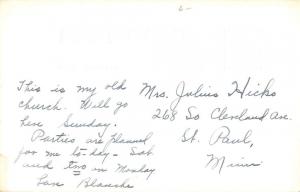 This is my old
church. Will go
here Sunday.
Parties are planned
for me to-day - Sat.
and two on Monday
Blanche
Mrs. Julius Hicks
268 So Cleveland Ave.
St. Paul,
Minn